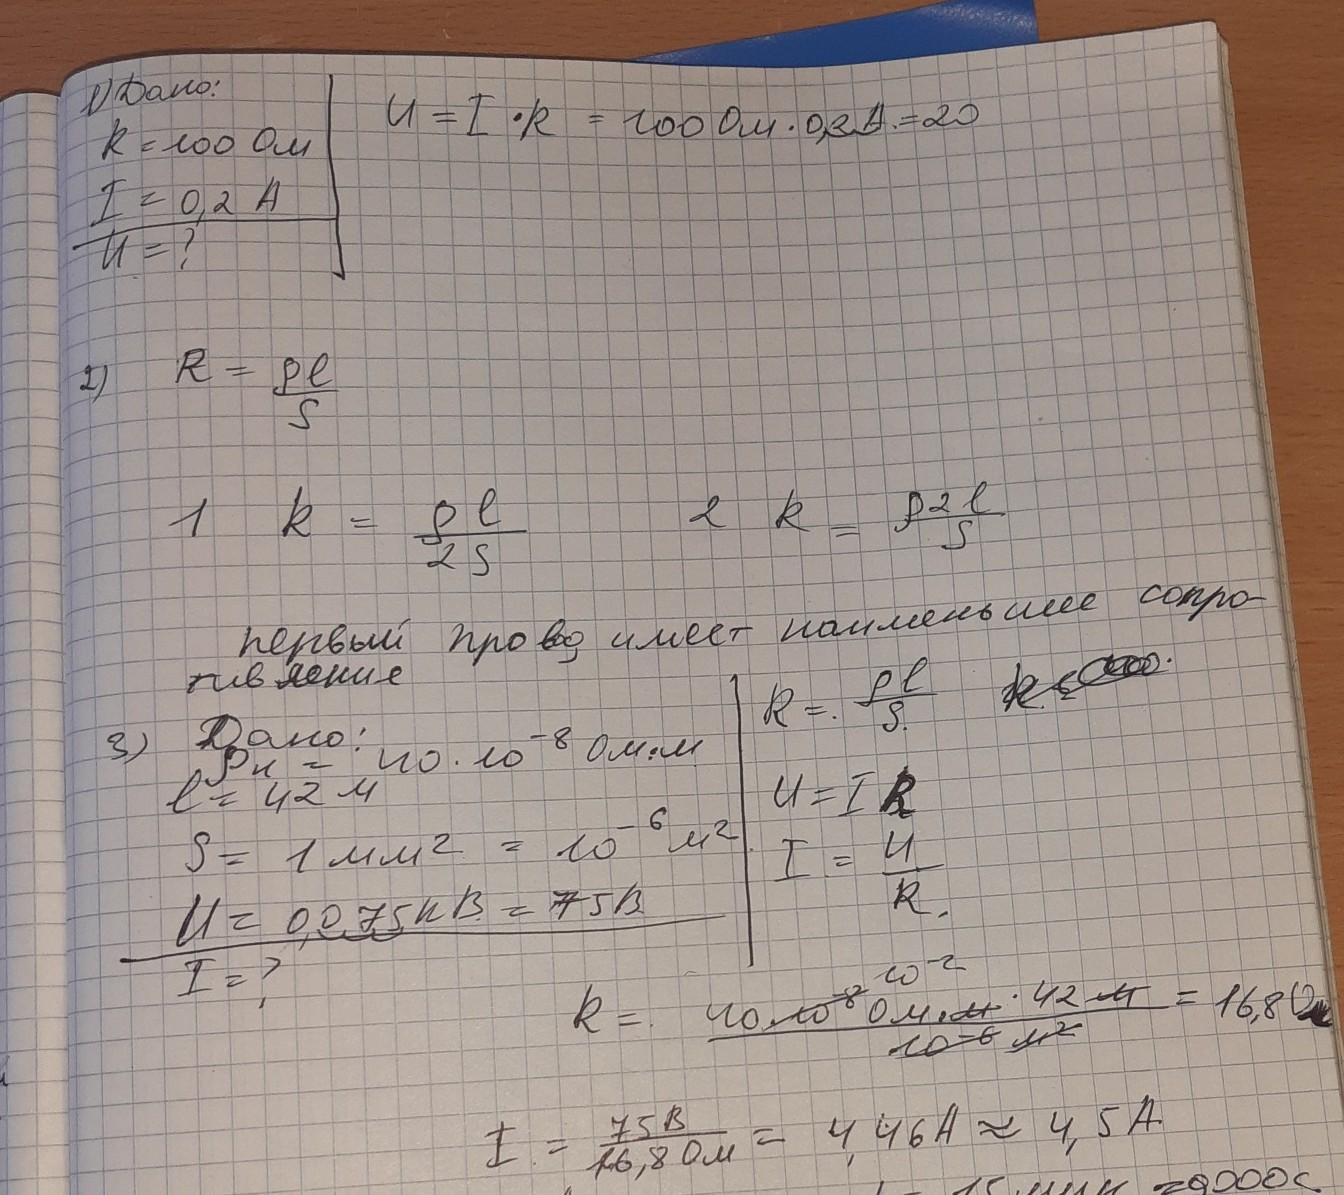 1) Дано:
R = 100 Ом
I = 0,2 А
U = ?
U = I · R = 100 Ом · 0,2 А = 20
2) R = ρl/S
1 R = ρl/2S
2 R = ρ2l/S
первый провод имеет наименьшее сопро-
тивление
3) Дано:
ρн = 40 · 10⁻⁸ Ом·м
l = 42 м
S = 1 мм² = 10⁻⁶ м²
U = 0,075кВ = 75В
I = ?
R = ρl/S
U = IR
I = U/R
R = 40·10⁻⁸ Ом·м · 42 м / 10⁻⁶ м² = 16,8 Ом
10⁻²
I = 75В/16,8 Ом = 4,46А ≈ 4,5А
15 мин